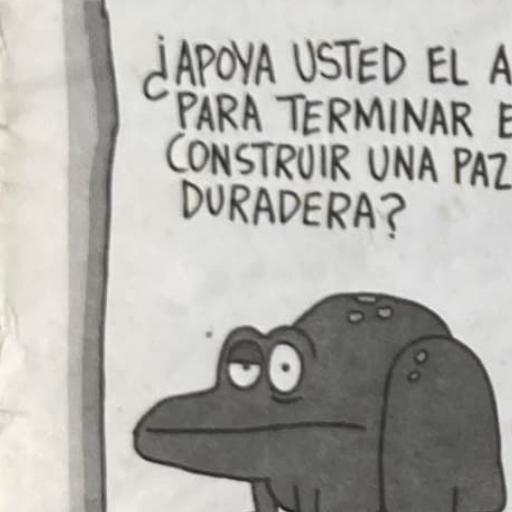 ¿APOYA USTED EL A
PARA TERMINAR E
CONSTRUIR UNA PAZ
DURADERA?